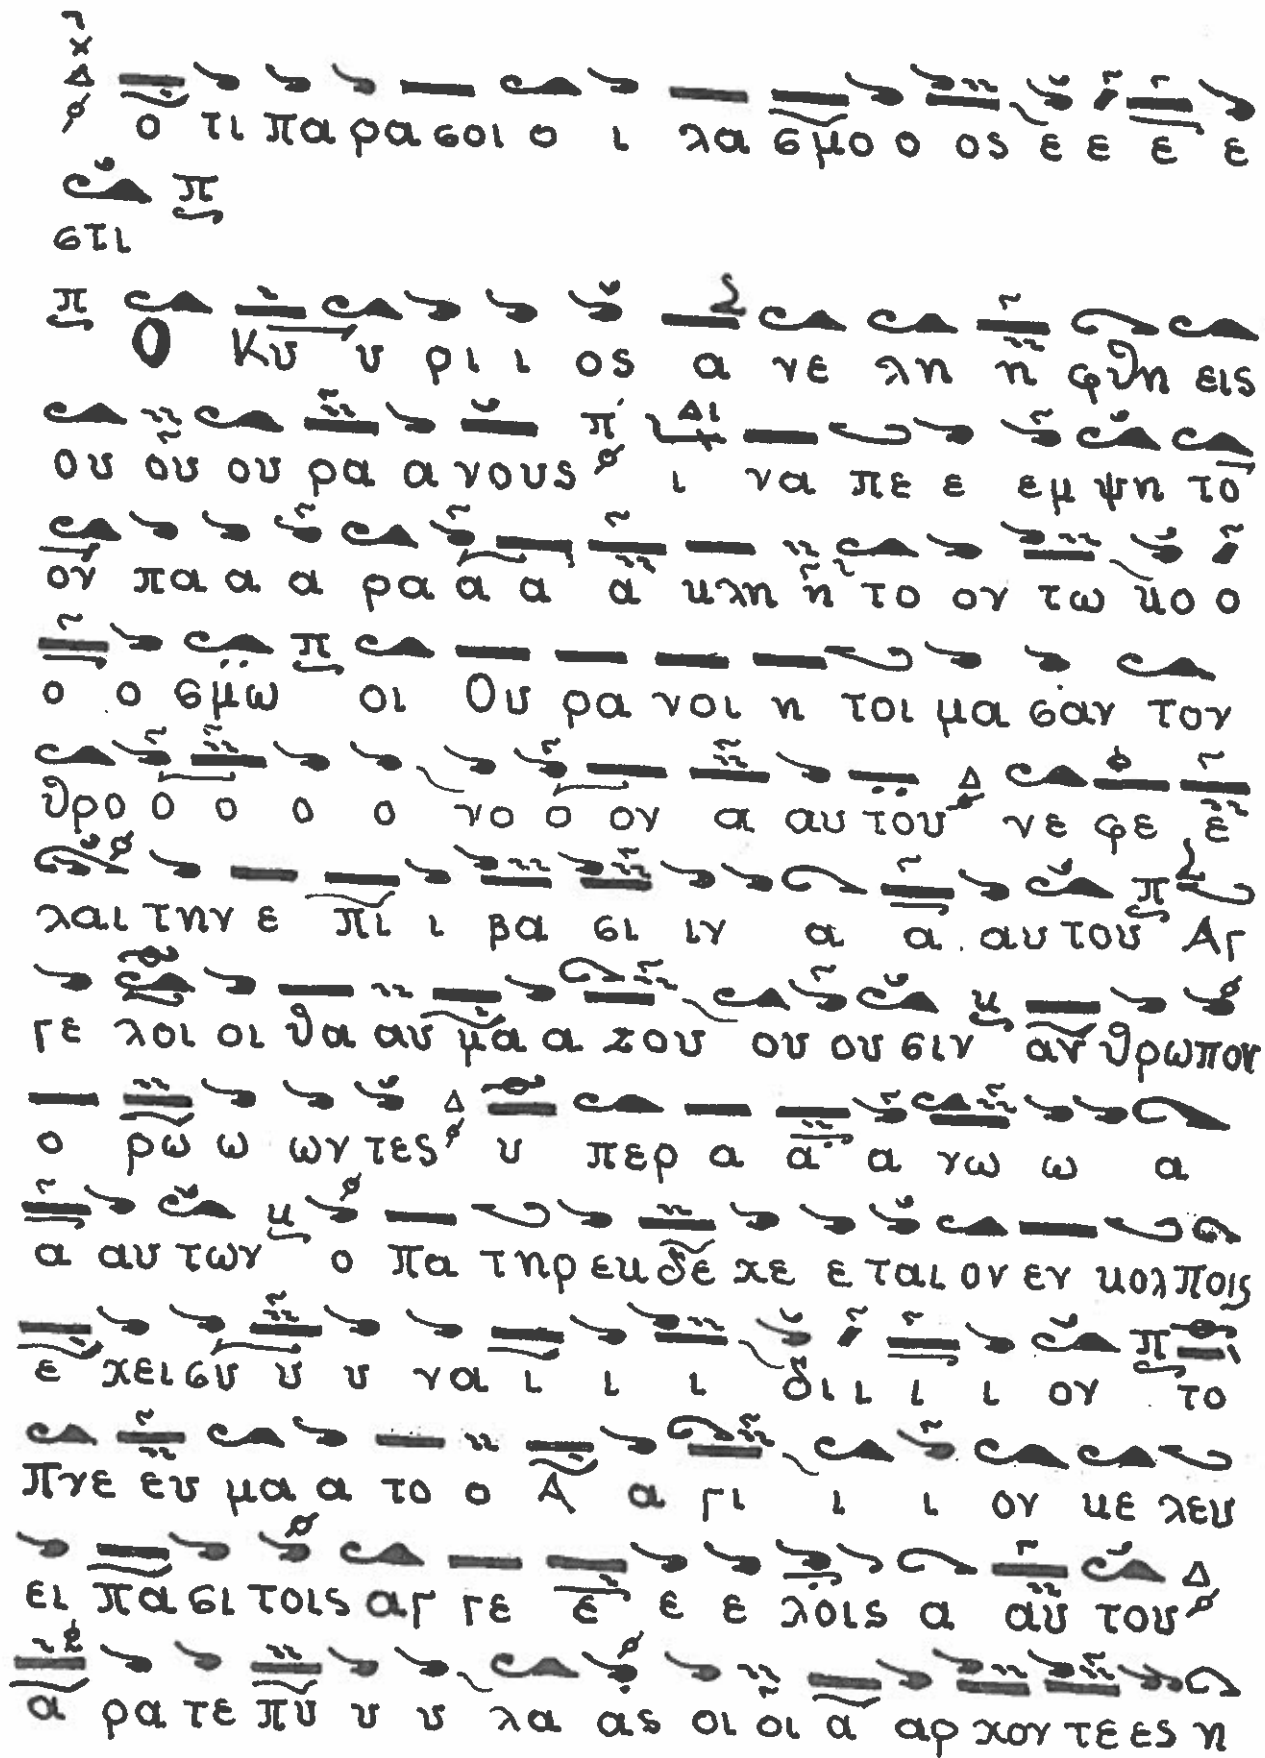 ο τι πα ρα σοι ο ι λα σμο ο ος ε ε ε ε
στι
Ο Κυ υ ρι ι ος α νε λη η φθη εις
ου ου ου ρα α νους ι να πε ε εμ ψη το
ον πα α α ρα α α α κλη η το ον τω κο ο
ο ο σμω οι Ου ρα νοι η τοι μα σαν τον
θρο ο ο ο ο νο ο ον α αυ του νε φε ε
λαι την ε πι ι βα σι ιν α α αυ του Αγ
γε λοι οι θα αυ μα α ζου ου ου σιν αν θρωπον
ο ρω ω ων τες υ περ α α α νω ω α
α αυ των ο πα τηρ εκ δε χε ε ται ον εν κολ ποις
ε χει συ υ υ να ι ι ι δι ι ι ι ον το
Πνε ευ μα α το ο Α α γι ι ι ον κε λευ
ει πα σι τοις αγ γε ε ε ε λοις α αυ του
α ρα τε πυ υ υ λα ας οι οι α αρ χον τε ες η